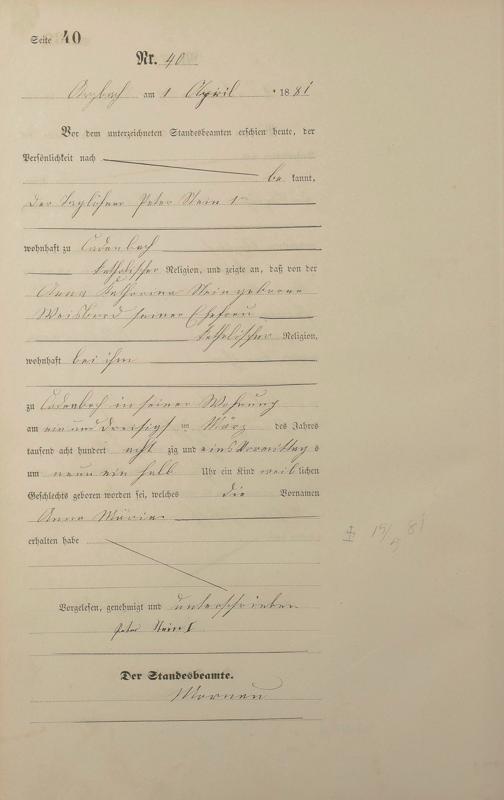 Seite 40
Nr. 40
Arzbach am 1 April 1881
Vor dem unterzeichneten Standesbeamten erschien heute, der
Persönlichkeit nach
be kannt,
der Taglöhner Peter Stein 1r
wohnhaft zu Cadenbach
katholischer Religion, und zeigte an, daß von der
Anna Katharina Stein geborene
Weisbrod seiner Ehefrau
katholischer Religion,
wohnhaft bei ihm
zu Cadenbach in seiner Wohnung
am ein und dreisigst im März des Jahres
tausend acht hundert acht zig und eins Vormittag s
um neun ein halb Uhr ein Kind weib lichen
Geschlechts geboren worden sei, welches die Vornamen
Anna Maria
erhalten habe
Vorgelesen, genehmigt und unterschrieben
Peter Stein I
Der Standesbeamte.